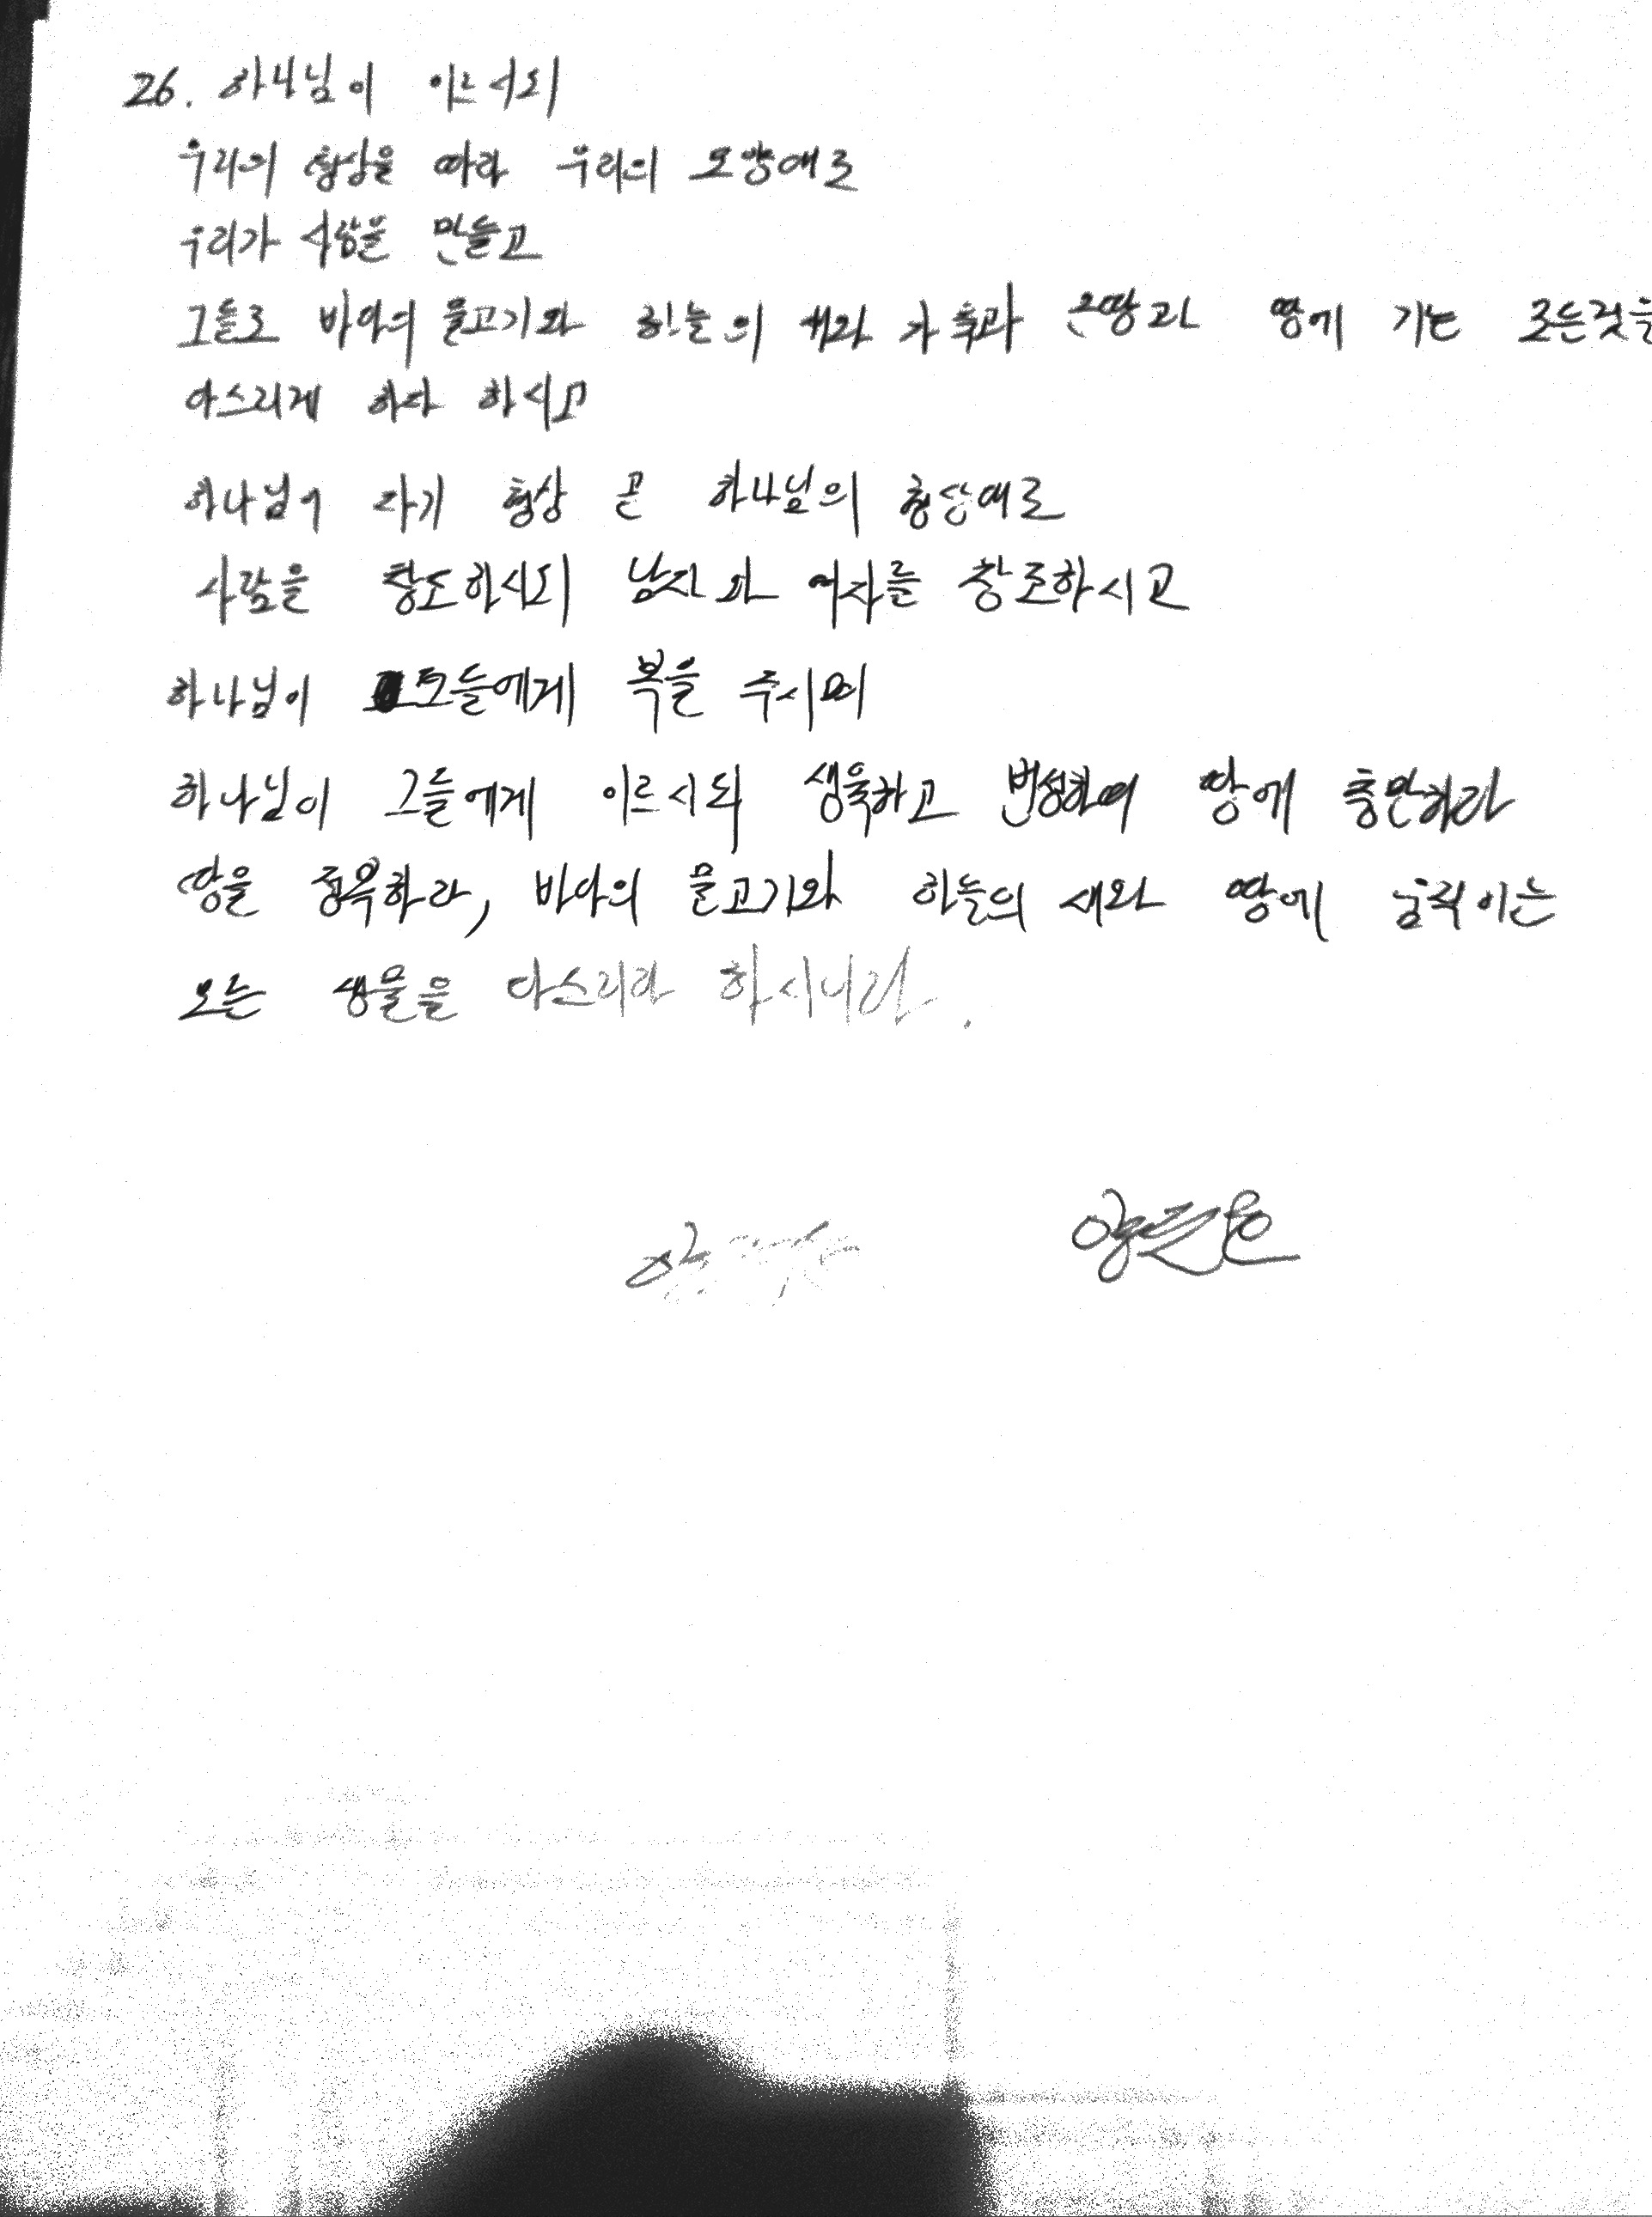 26. 하나님이 이르시되
우리의 형상을 따라 우리의 모양대로
우리가 사람을 만들고
그들로 바다의 물고기와 하늘의 새와 가축과 온땅과 땅에 기는 모든것을
다스리게 하자 하시고
하나님이 자기 형상 곧 하나님의 형상대로
사람을 창조하시되 남자와 여자를 창조하시고
하나님이 그들에게 복을 주시며
하나님이 그들에게 이르시되 생육하고 번성하여 땅에 충만하라
땅을 정복하라, 바다의 물고기와 하늘의 새와 땅에 움직이는
모든 생물을 다스리라 하시니라.